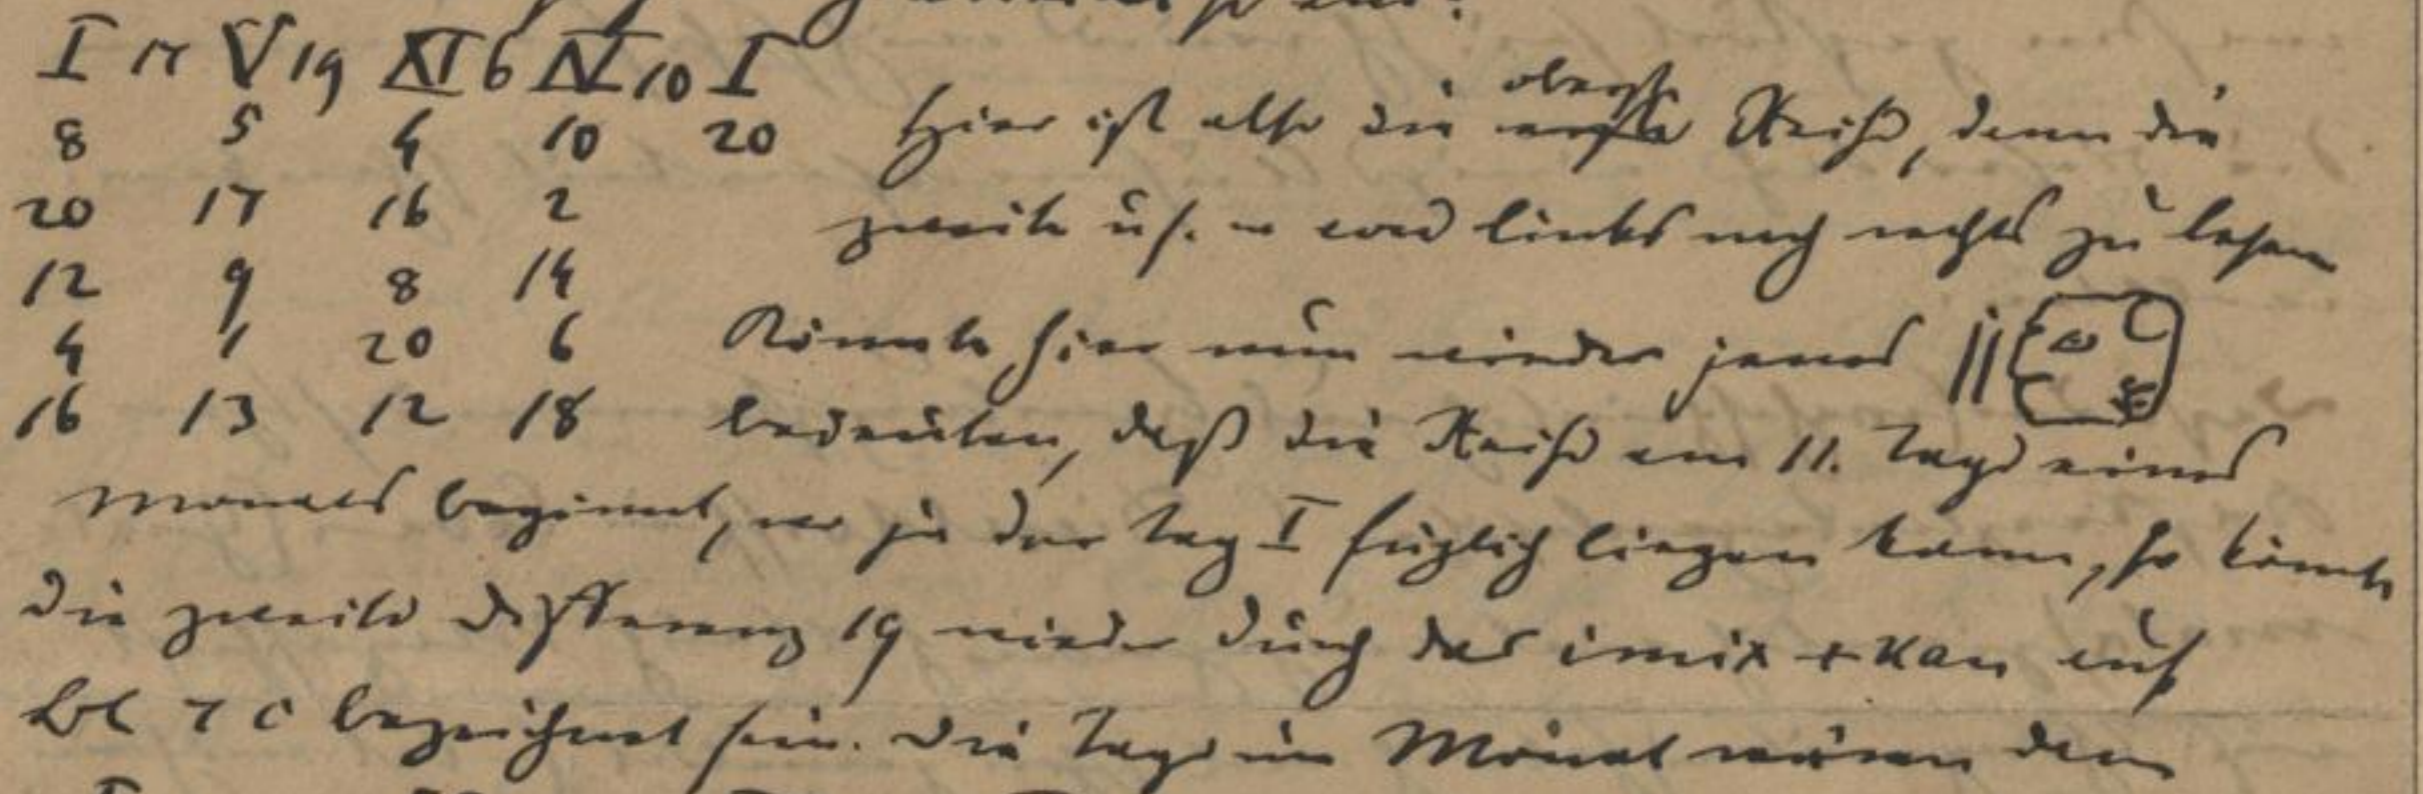 I 17 V 19 XI 6 IV 10 I
oberste
8 5 4 10 20 Hier ist also die erste Reihe, dann die
20 17 16 2 zweite u. s. w von links nach rechts zu lesen
12 9 8 14
4 1 20 6 Könnte hier nun wieder jenes 11
16 13 12 18 bedeuten, daß die Reihe am 11. Tage eines
Monats beginnt, wo ja der Tag I füglich liegen kann, so könnte
die zweite Differenz 19 wieder durch das imix + kan auf
Bl 7 c bezeichnet sein. Die Tage im Monat wären dann